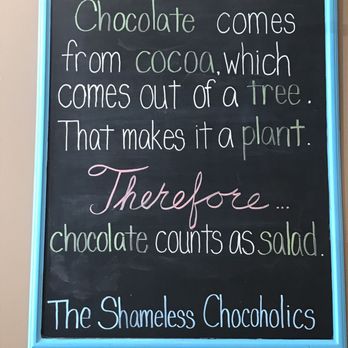 Chocolate comes
from cocoa, which
comes out of a tree.
That makes it a plant.
Therefore...
chocolate counts as salad.
The Shameless Chocoholics